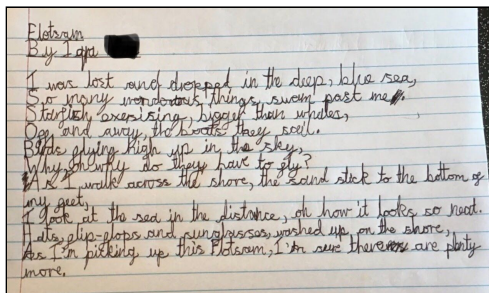 Flotsam
By
I was lost and dropped in the deep, blue sea,
So many wonderous things, swam past me.
Starfish exepising, bigger than whales,
Off and away, the boats they sail.
Birds flying high up in the sky,
Why, oh why do they have to fly?
As I walk across the shore, the sand stick to the bottom of
my feet,
I look at the sea in the distance, oh how it looks so neat.
Hats, flip-flops and sunglasses, washed up on the shore,
As I'm picking up this Flotsam, I'm sure there are plenty
more.